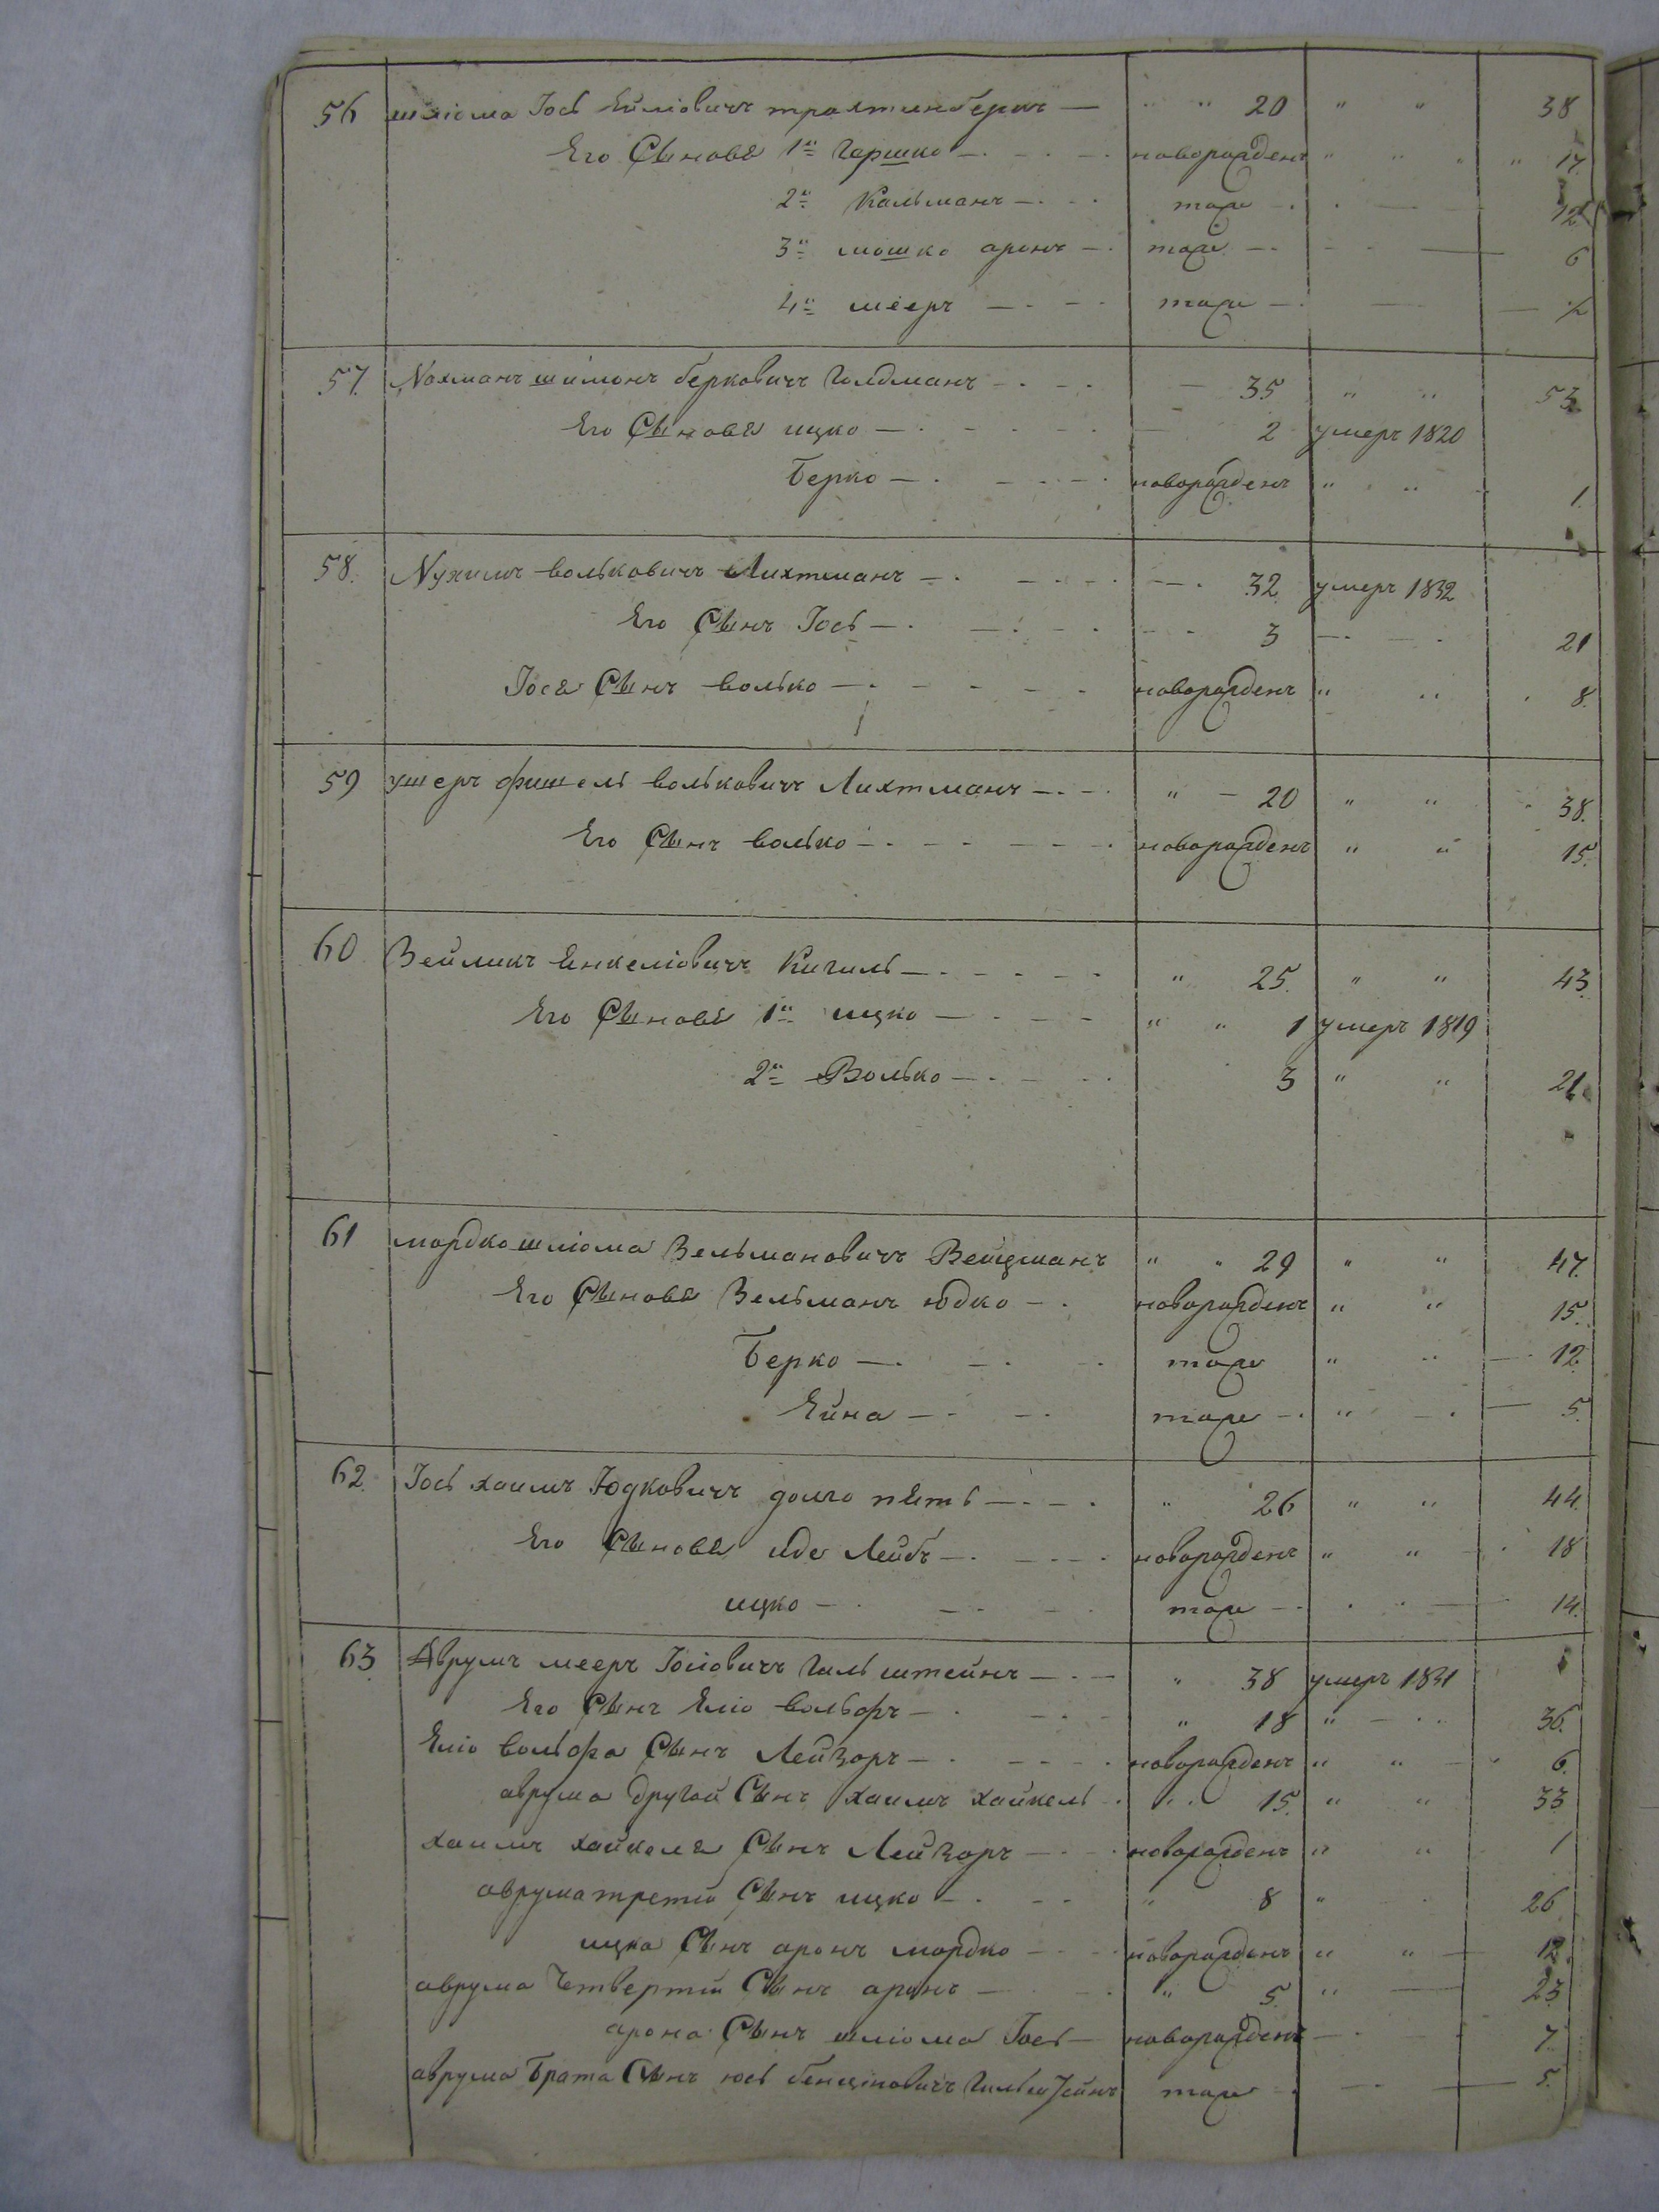 56 шліома Іось Ейліовичъ трахтинбергъ — " " 20 " " 38
Его Сыновя 1й Гершко — новорожденъ " " " " 17
2й Кальманъ — тоже — 12
3й мошко аронъ — тоже — 6
4й мееръ — тоже — 1/2
57. Нахманъ шимонъ берковичъ Голдманъ — 35 " " 53
Его Сыновя ицко — 2 умеръ 1820
Берко — новорожденъ " " 1.
58. Нухимъ вольковичъ Лихтманъ — 32 умеръ 1832
Его Сынъ Іось — 3 — 21
Іося Сынъ волько — новорожденъ " " 8.
59 ушеръ фишель вольковичъ Лихтманъ — " — 20 " " 38.
Его Сынъ волько — новорожденъ " " 15.
60 Зейликъ Янкеліовичъ Кигиль — " 25. " " 43.
Его Сыновя 1й ицко — " " 1 умеръ 1819
2й Волько — 3 " " 21.
61 мордко шліома Зельмановичъ Вейцманъ " " 29 " " 47.
Его Сыновя Зельманъ юдко — новорожденъ " " 15.
Берко — тоже " " — 12
Ейна — тоже — " — 5.
62. Іось хаимъ Юдковичъ долго пять — " 26 " " 44.
Его Сыновя иде Лейбъ — новорожденъ " " 18
ицко — тоже — 14.
63 Аврумъ мееръ Іосіовичъ Гильштейнъ — " 38 умеръ 1831
Его Сынъ Еліо вольфъ — " 18 " — 36.
Еліо вольфа Сынъ Лейзоръ — новорожденъ " " 6.
аврума Другой Сынъ хаимъ хайкель " " 15. " " 33
хаимъ хайкеля Сынъ Лейзоръ — новорожденъ " " 1
аврума третій Сынъ ицко — " 8 " 26
ицка Сынъ аронъ мордко — новорожденъ " " — 12.
аврума Четвертій Сынъ аронъ — " 5. " — 23
арона Сынъ шліома Іось — новорожденъ — 7.
аврума Брата Сынъ юсь бенціновичъ Гильштейнъ тоже — 5.